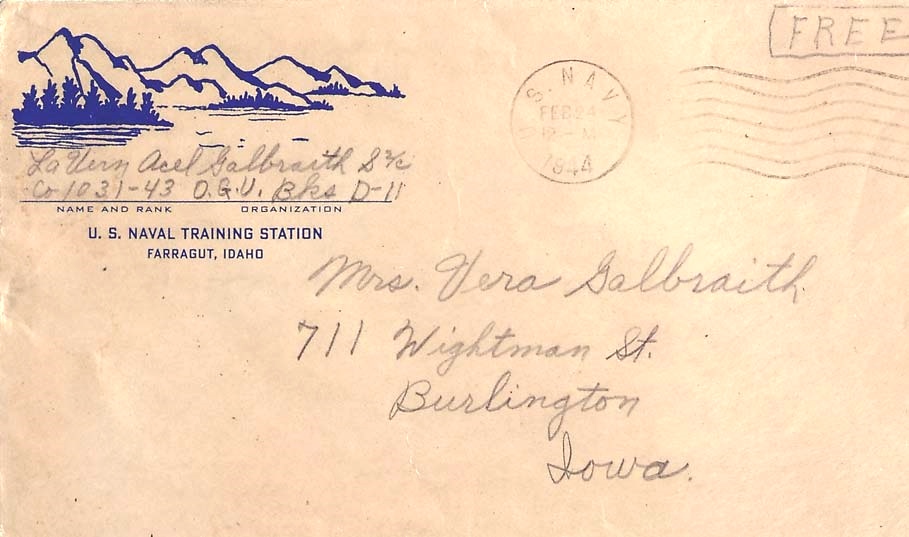 FREE
U.S. NAVY
FEB 24
M
1944
LaVern Acel Galbraith S 2/c
Co 1031-43 O.G.U. Bks D-11
NAME AND RANK ORGANIZATION
U. S. NAVAL TRAINING STATION
FARRAGUT, IDAHO
Mrs. Vera Galbraith
711 Wightman St.
Burlington
Iowa.